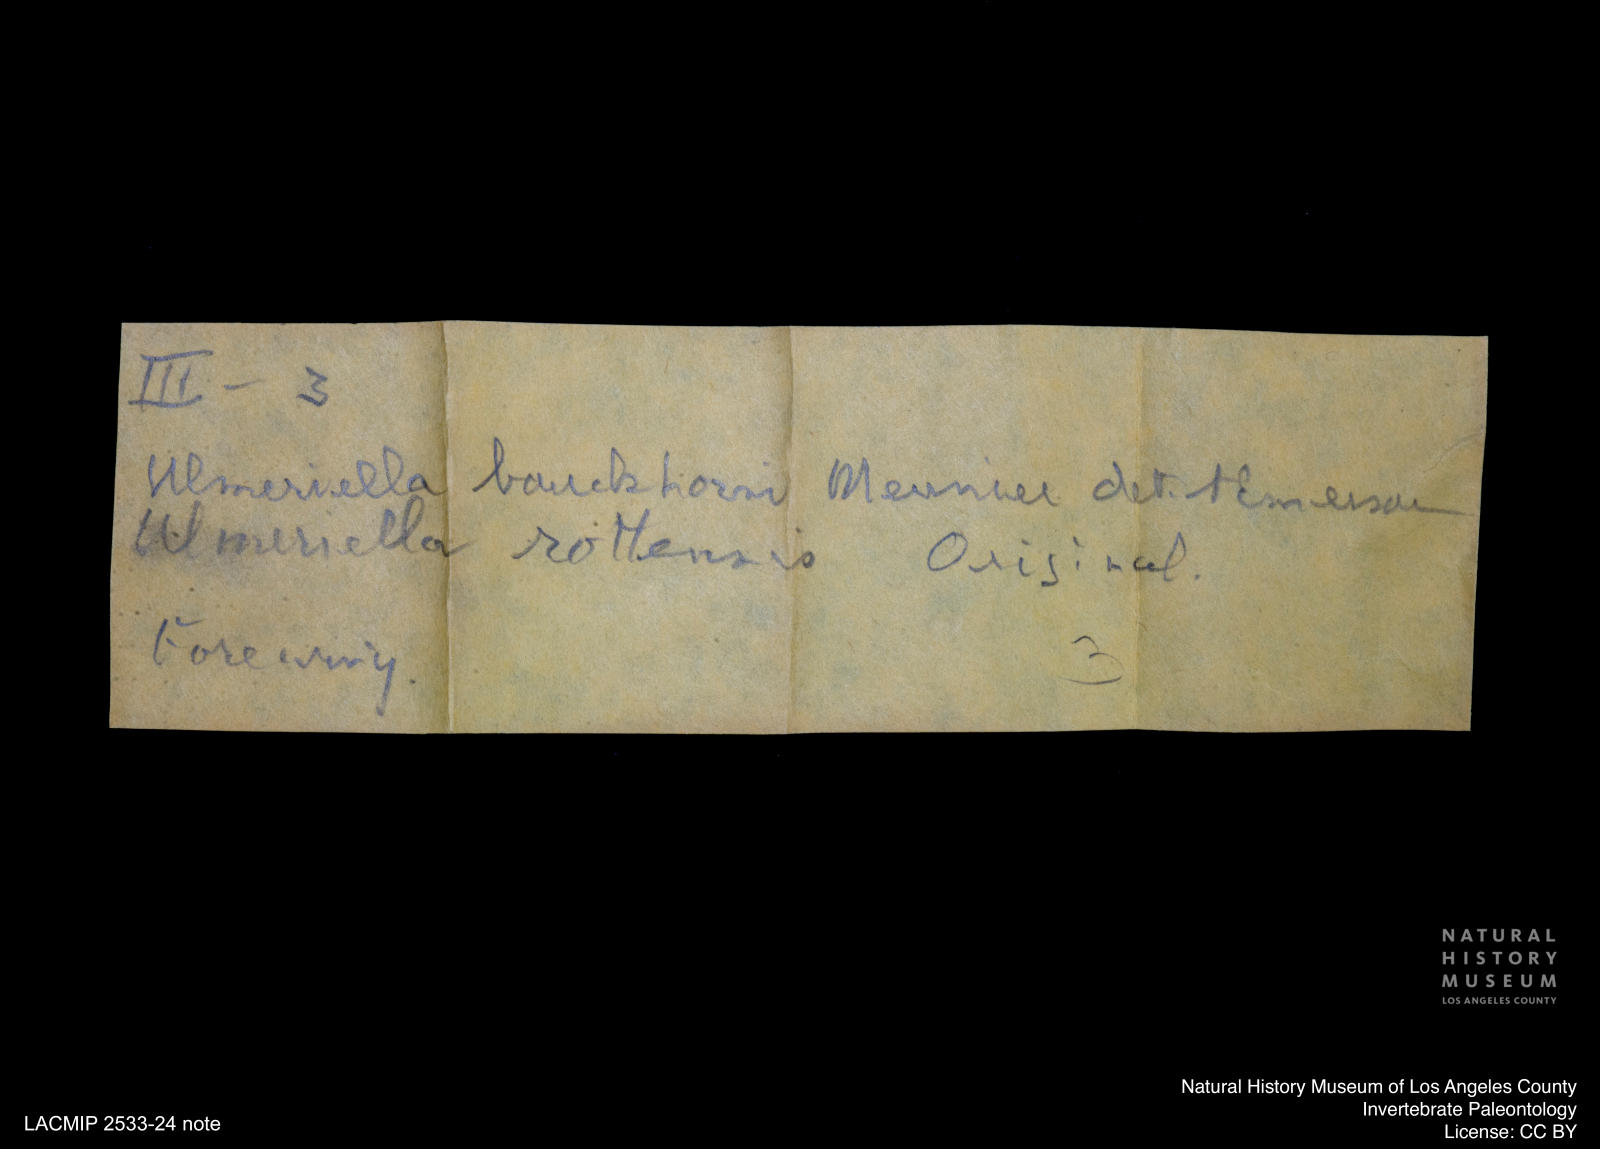 III - 3
Ulmeriella bauckhorni Meunier det. Emerson
Ulmeriella rottensis Original.
Forewing.
3
NATURAL
HISTORY
MUSEUM
LOS ANGELES COUNTY
Natural History Museum of Los Angeles County
Invertebrate Paleontology
License: CC BY
LACMIP 2533-24 note